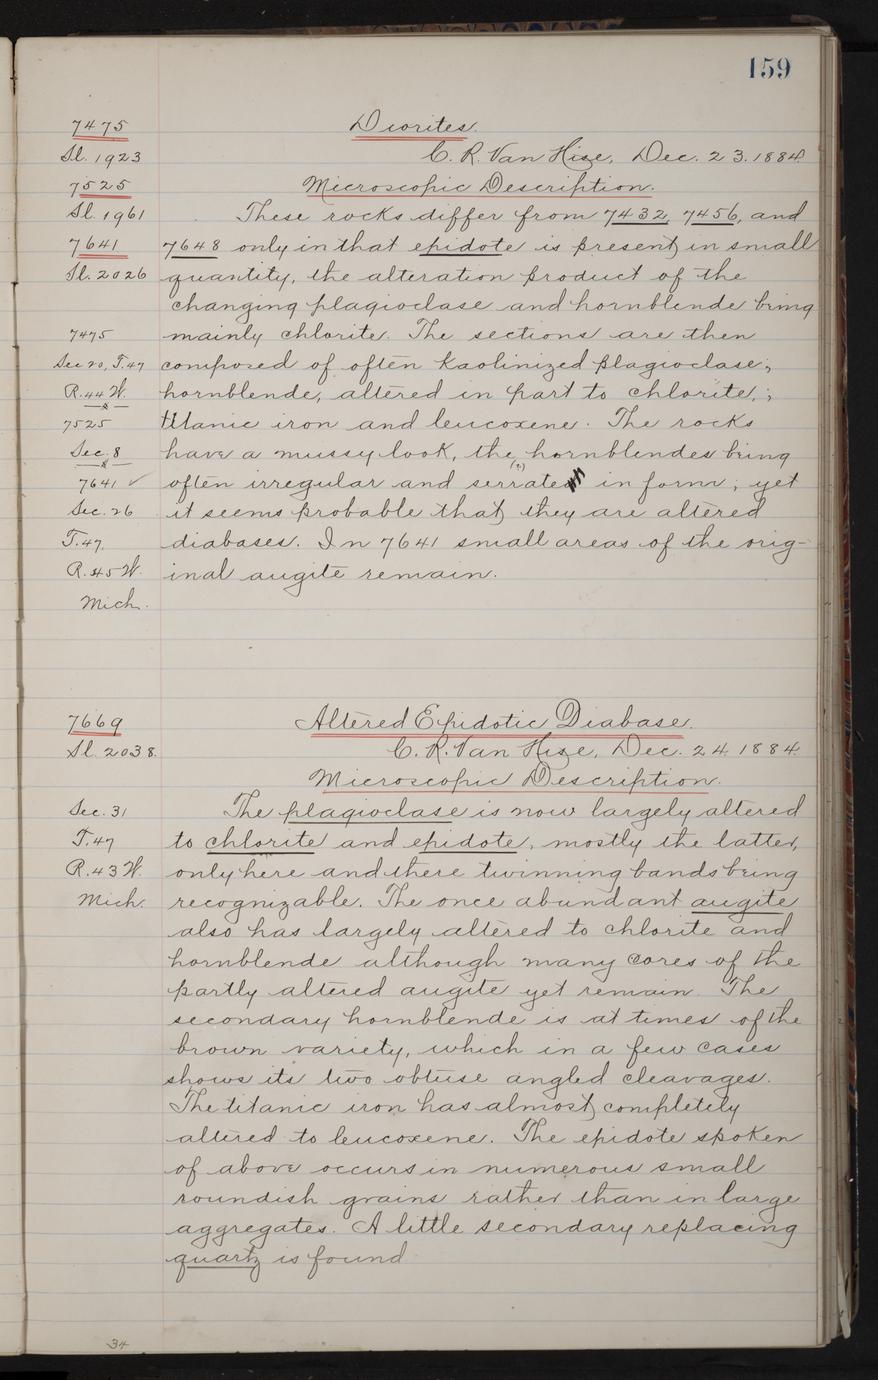 159
7475 Diorites.
Sl. 1923 C. R. Van Hise, Dec. 23. 1884.
7525 Microscopic Description.
Sl. 1961 These rocks differ from 7432, 7456, and
7641 7648 only in that epidote is present in small
Sl. 2026 quantity, the alteration product of the
changing plagioclase and hornblende being
7475 mainly chlorite. The sections are then
Sec 20, T.47 composed of often kaolinized plagioclase;
R.44 W. hornblende, altered in part to chlorite, ;
7525 titanic iron and leucoxene. The rocks
Sec. 8 have a mussy look, the hornblendes being
7641 ✓ often irregular and serrate (?) in form; yet
Sec. 26 it seems probable that they are altered
T.47. diabases. In 7641 small areas of the orig-
R.45 W. inal augite remain.
Mich.
7669 Altered Epidotic Diabase.
Sl. 2038. C. R. Van Hise, Dec. 24. 1884.
Microscopic Description.
Sec. 31 The plagioclase is now largely altered
T.47 to chlorite and epidote, mostly the latter,
R.43 W. only here and there twinning bands being
Mich. recognizable. The once abundant augite
also has largely altered to chlorite and
hornblende although many cores of the
partly altered augite yet remain. The
secondary hornblende is at times of the
brown variety, which in a few cases
shows its two obtuse angled cleavages.
The titanic iron has almost completely
altered to leucoxene. The epidote spoken
of above occurs in numerous small
roundish grains rather than in large
aggregates. A little secondary replacing
quartz is found
34